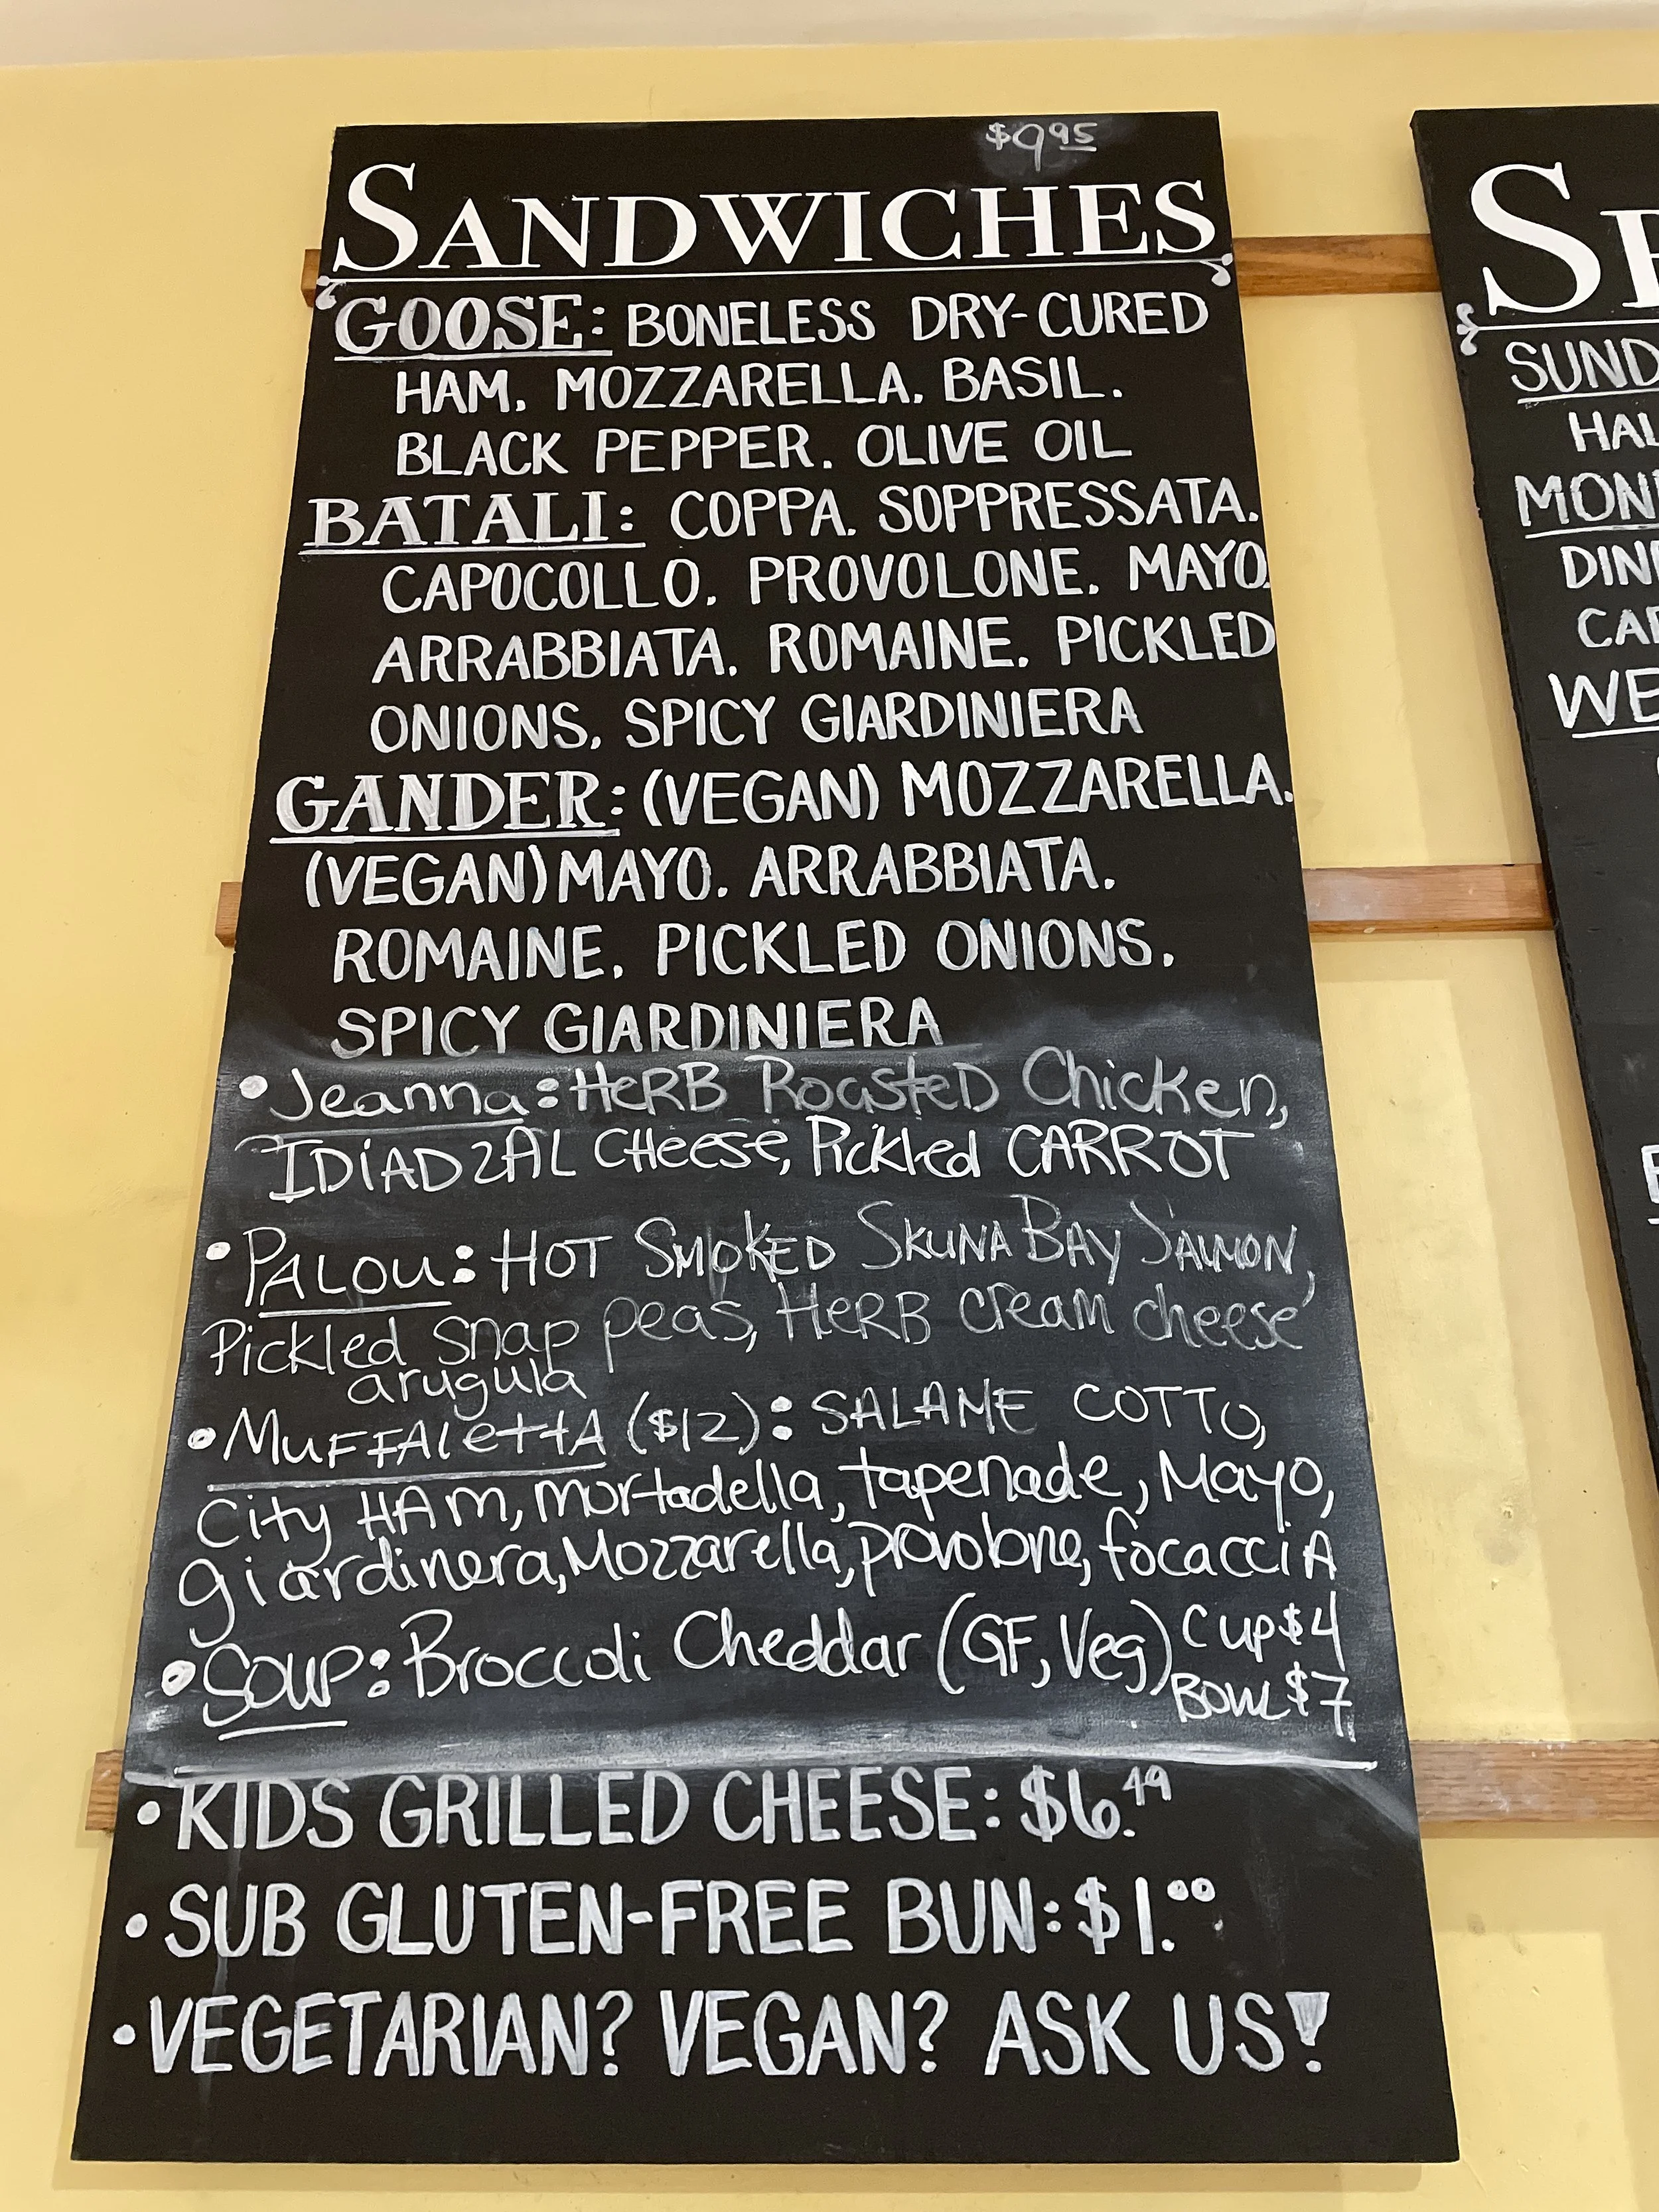 $9.95
SANDWICHES
GOOSE: BONELESS DRY-CURED
HAM. MOZZARELLA. BASIL.
BLACK PEPPER. OLIVE OIL
BATALI: COPPA. SOPPRESSATA.
CAPOCOLLO. PROVOLONE. MAYO.
ARRABBIATA. ROMAINE. PICKLED
ONIONS. SPICY GIARDINIERA
GANDER: (VEGAN) MOZZARELLA.
(VEGAN) MAYO. ARRABBIATA.
ROMAINE. PICKLED ONIONS.
SPICY GIARDINIERA
•Jeanna: HeRB RoasteD Chicken,
IDiADzAL CHeese, Pickled CARROT
•PALOU: HOT SMOKED SKUNA BAY SALMON,
Pickled snap peas, HeRB cream cheese
arugula
•MuFFAlettA ($12): SALAME COTTO,
City HAM, mortadella, tapenade, Mayo,
giardinera, Mozzarella, provolone, focacciA
•SOUP: Broccoli Cheddar (GF, Veg) Cup $4
Bowl $7
•KIDS GRILLED CHEESE: $6.49
•SUB GLUTEN-FREE BUN: $1.00
•VEGETARIAN? VEGAN? ASK US!
SUND
HAL
MON
DIN
CAR
WE